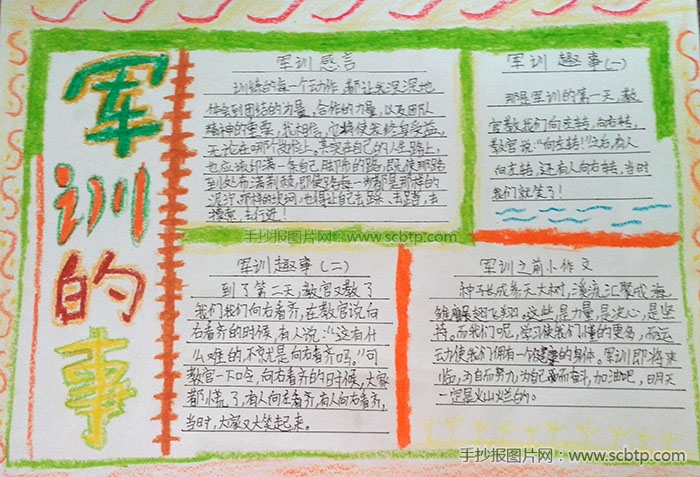 军训的事
军训感言
训练的每一个动作,都让我深深地
体会到团结的力量,合作的力量,以及团队
精神的重要,我相信,它将使我终身受益。
无论在哪个岗位上,其实在自己的人生路上,
也应该印满一条自己脚印的路,既使那路
到处布满荆棘,即使路每一步都是那样的
泥泞,那样的坎坷,也得让自己去踩、去踏、去
摸索、去行进!
手抄报图片网:www.scbtp.com
军训趣事(一)
那是军训的第一天,教
官教我们向左转,向右转,
教官说"向左转!"之后,有人
向左转,还有人向右转,当时
我们就笑了!
军训趣事(二)
到了第二天,教官又教了
我们我们向右看齐,在教官说向
右看齐的时候,有人说:"这有什
么难的,不就是向右看齐吗。"可
教官一下口令,向右看齐的日时候,大家
都慌了,有人向左看齐,有人向右看齐,
当时,大家又大笑起来。
军训之前小作文
种子长成参天大树,溪流汇聚成海
雏鹰翅飞翔。这些,是力量,是决心,是坚
持。而我们呢,学习使我们懂的更多,而运
动使我们拥有一个健康的身体,军训即将来
临,为自而努力,为自己而奋斗,加油吧,明天
一定是火山烂的。
手抄报图片网:www.scbtp.com